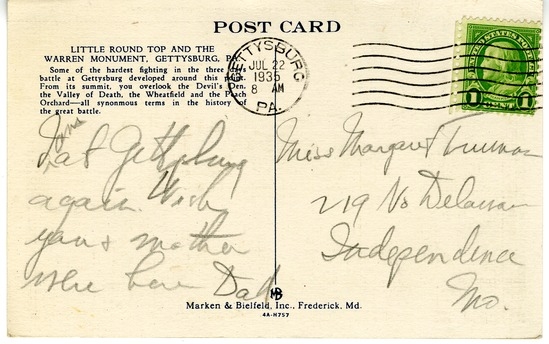 POST CARD
LITTLE ROUND TOP AND THE
WARREN MONUMENT, GETTYSBURG, PA.
Some of the hardest fighting in the three day
battle at Gettysburg developed around this
From its summit, you overlook the Devil's Den,
the Valley of Death, the Wheatfield and the Peach
Orchard—all synonmous terms in the history of
the great battle.
GETTYSBURG
JUL 22
1935
8 AM
PA.
UNITED STATES POSTAGE
1 CENT 1
I am
at Gettysburg
again. Wish
you & mother
were here Dad
Miss Margaret Truman
219 No Delaware
Independence
Mo.
MB
Marken & Bielfeld, Inc., Frederick, Md.
4A-H757